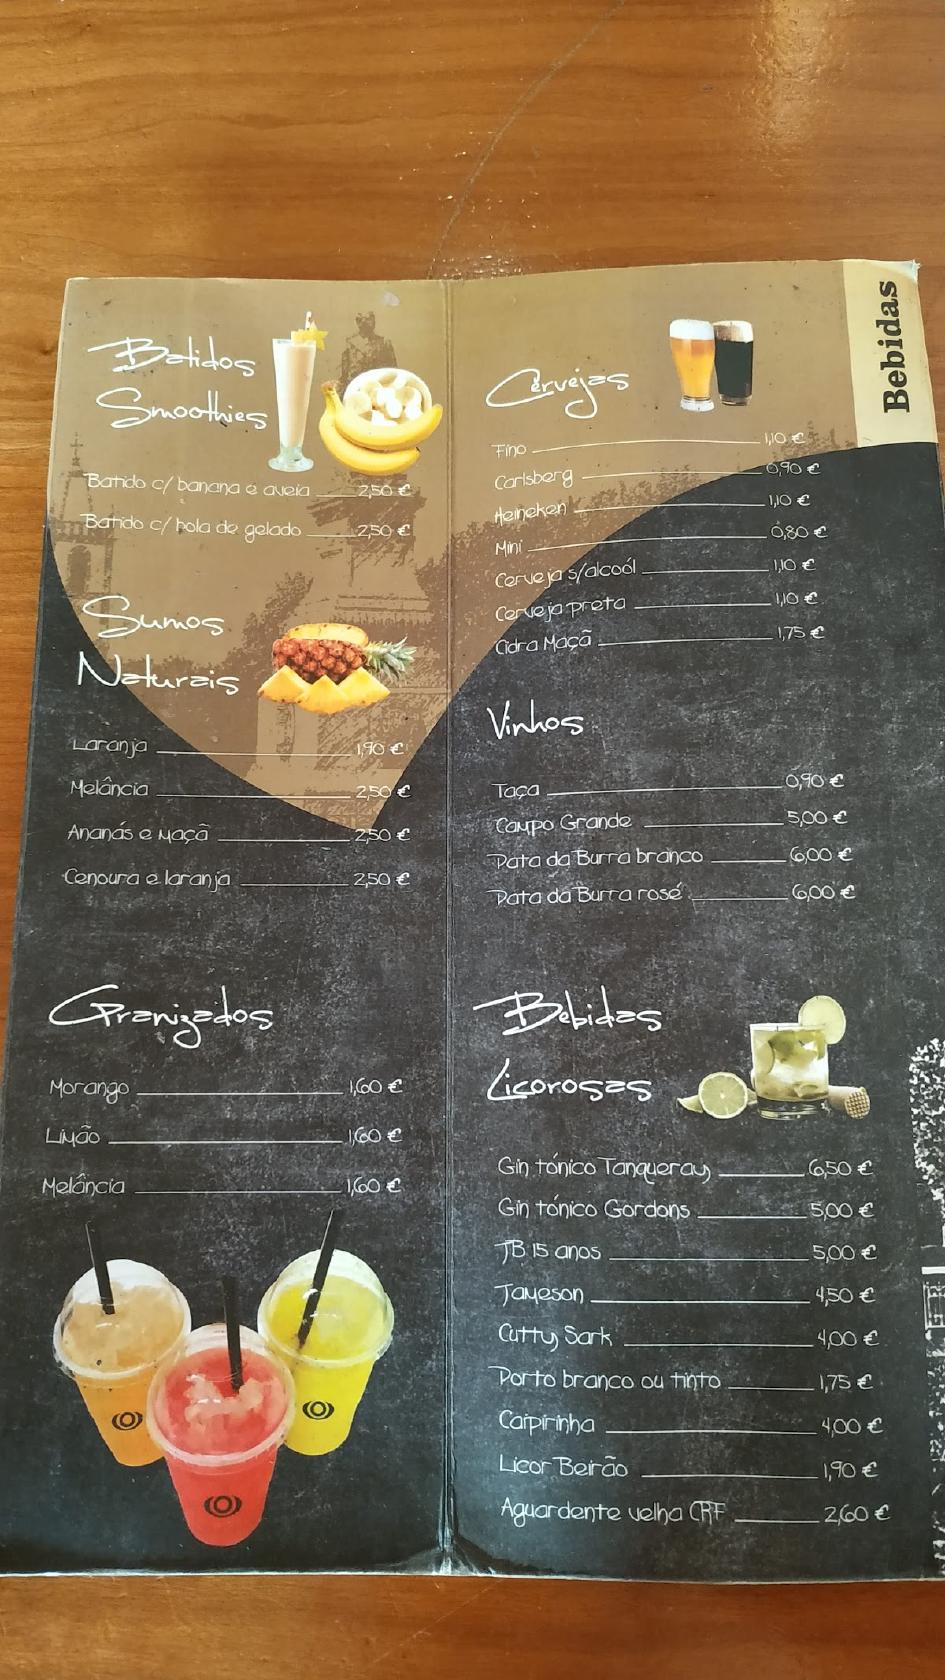 Bebidas
Batidos
Smoothies
Batido c/ banana e aveia 2,50 €
Batido c/ bola de gelado 2,50 €
Sumos
Naturais
Laranja 1,90 €
Melância 2,50 €
Ananás e maçã 2,50 €
Cenoura e laranja 2,50 €
Granizados
Morango 1,60 €
Limão 1,60 €
Melância 1,60 €
Cervejas
Fino 1,10 €
Carlsberg 0,90 €
Heineken 1,10 €
Mini 0,80 €
Cerveja s/alcoól 1,10 €
Cerveja preta 1,10 €
Cidra Maçã 1,75 €
Vinhos
Taça 0,90 €
Campo Grande 5,00 €
Pata da Burra branco 6,00 €
Pata da Burra rosé 6,00 €
Bebidas
Licorosas
Gin tónico Tanqueray 6,50 €
Gin tónico Gordons 5,00 €
JB 15 anos 5,00 €
Jameson 4,50 €
Cutty Sark 4,00 €
Porto branco ou tinto 1,75 €
Caipirinha 4,00 €
Licor Beirão 1,90 €
Aguardente velha CRF 2,60 €